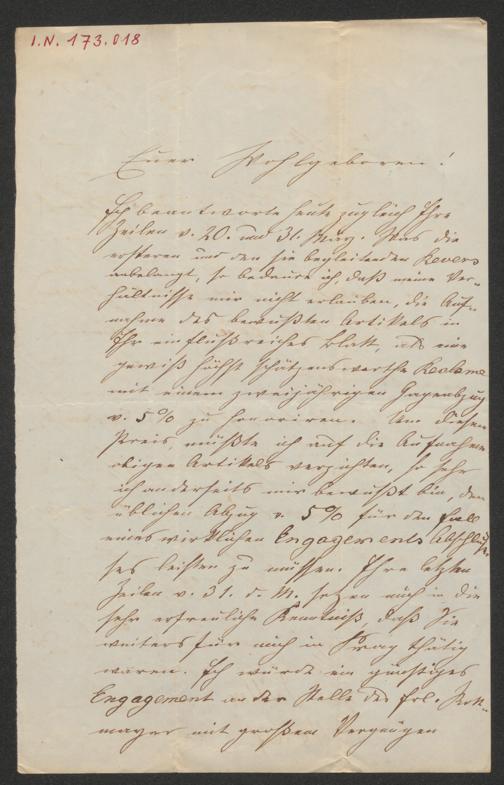 I.N. 173.018
Euer Wohlgeboren!
Ich beantworte heute zugleich Ihre
Zeilen v. 20. und 31. May. Was die
ersteren und den sie begleitenden Revers
anbelangt, so bedaure ich, daß meine Ver-
hältnisse mir nicht erlauben, die Auf-
nahme des bewußten Artikels in
Ihr einflußreiches Blatt, als eine
gewiß höchst schätzenswerthe Reclame
mit einem zweijährigen Gageabzug
v. 5% zu honoriren. Um diesen
Preis, müßte ich auf die Aufnahme
obigen Artikels verzichten, so sehr
ich anderseits mir bewußt bin, den
üblichen Abzug v. 5% für den Fall
eines wirklichen Engagements Abschlus-
ses leisten zu müssen. Ihre letzten
Zeilen v. 31. d. M. setzen mich in die
sehr erfreuliche Kenntniß, daß Sie
weiters für mich in Prag thätig
waren. Ich würde ein günstiges
Engagement an der Stelle des Frl.
mayer mit großem Vergnügen